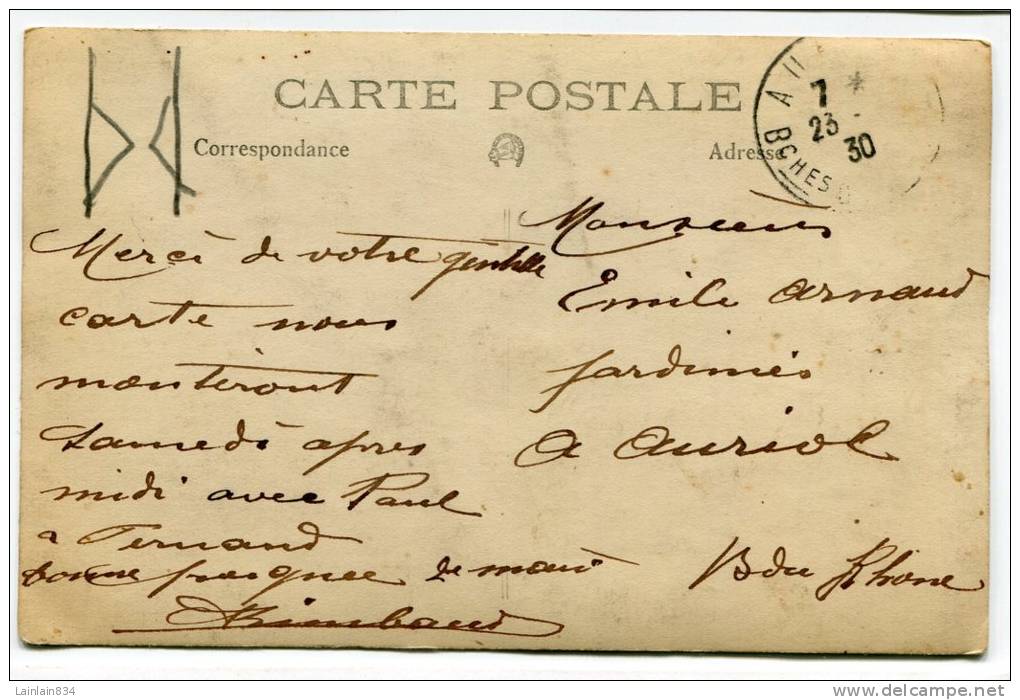 CARTE POSTALE
Correspondance
Adresse
A U
7 *
23 -
30
BCHES
Merci de votre gentille
carte nous
monteront
samedi apres
midi avec Paul
a Fernand
bonne poignee de main
Rimbaud
Monsieur
Emile Arnaud
Jardinier
a Auriol
B du Rhone
Lainlain834
© delcampe.net